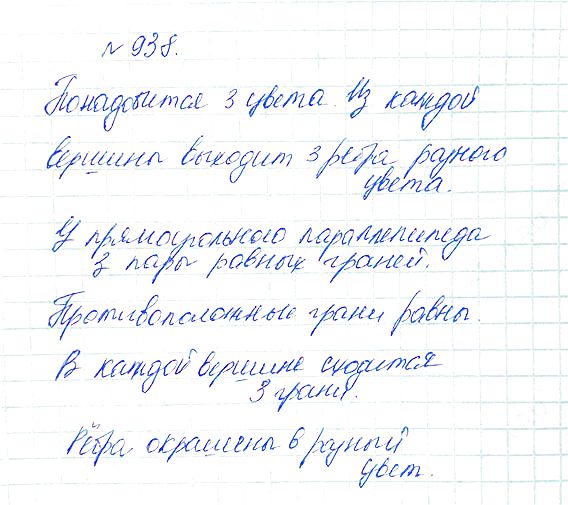 № 938.
Понадобится 3 цвета. Из каждой
вершины выходит 3 ребра разного
цвета.
У прямоугольного параллепипеда
3 пары равных граней.
Противоположные грани равны.
В каждой вершине сходится
3 грани.
Рёбра окрашены в разный
цвет.